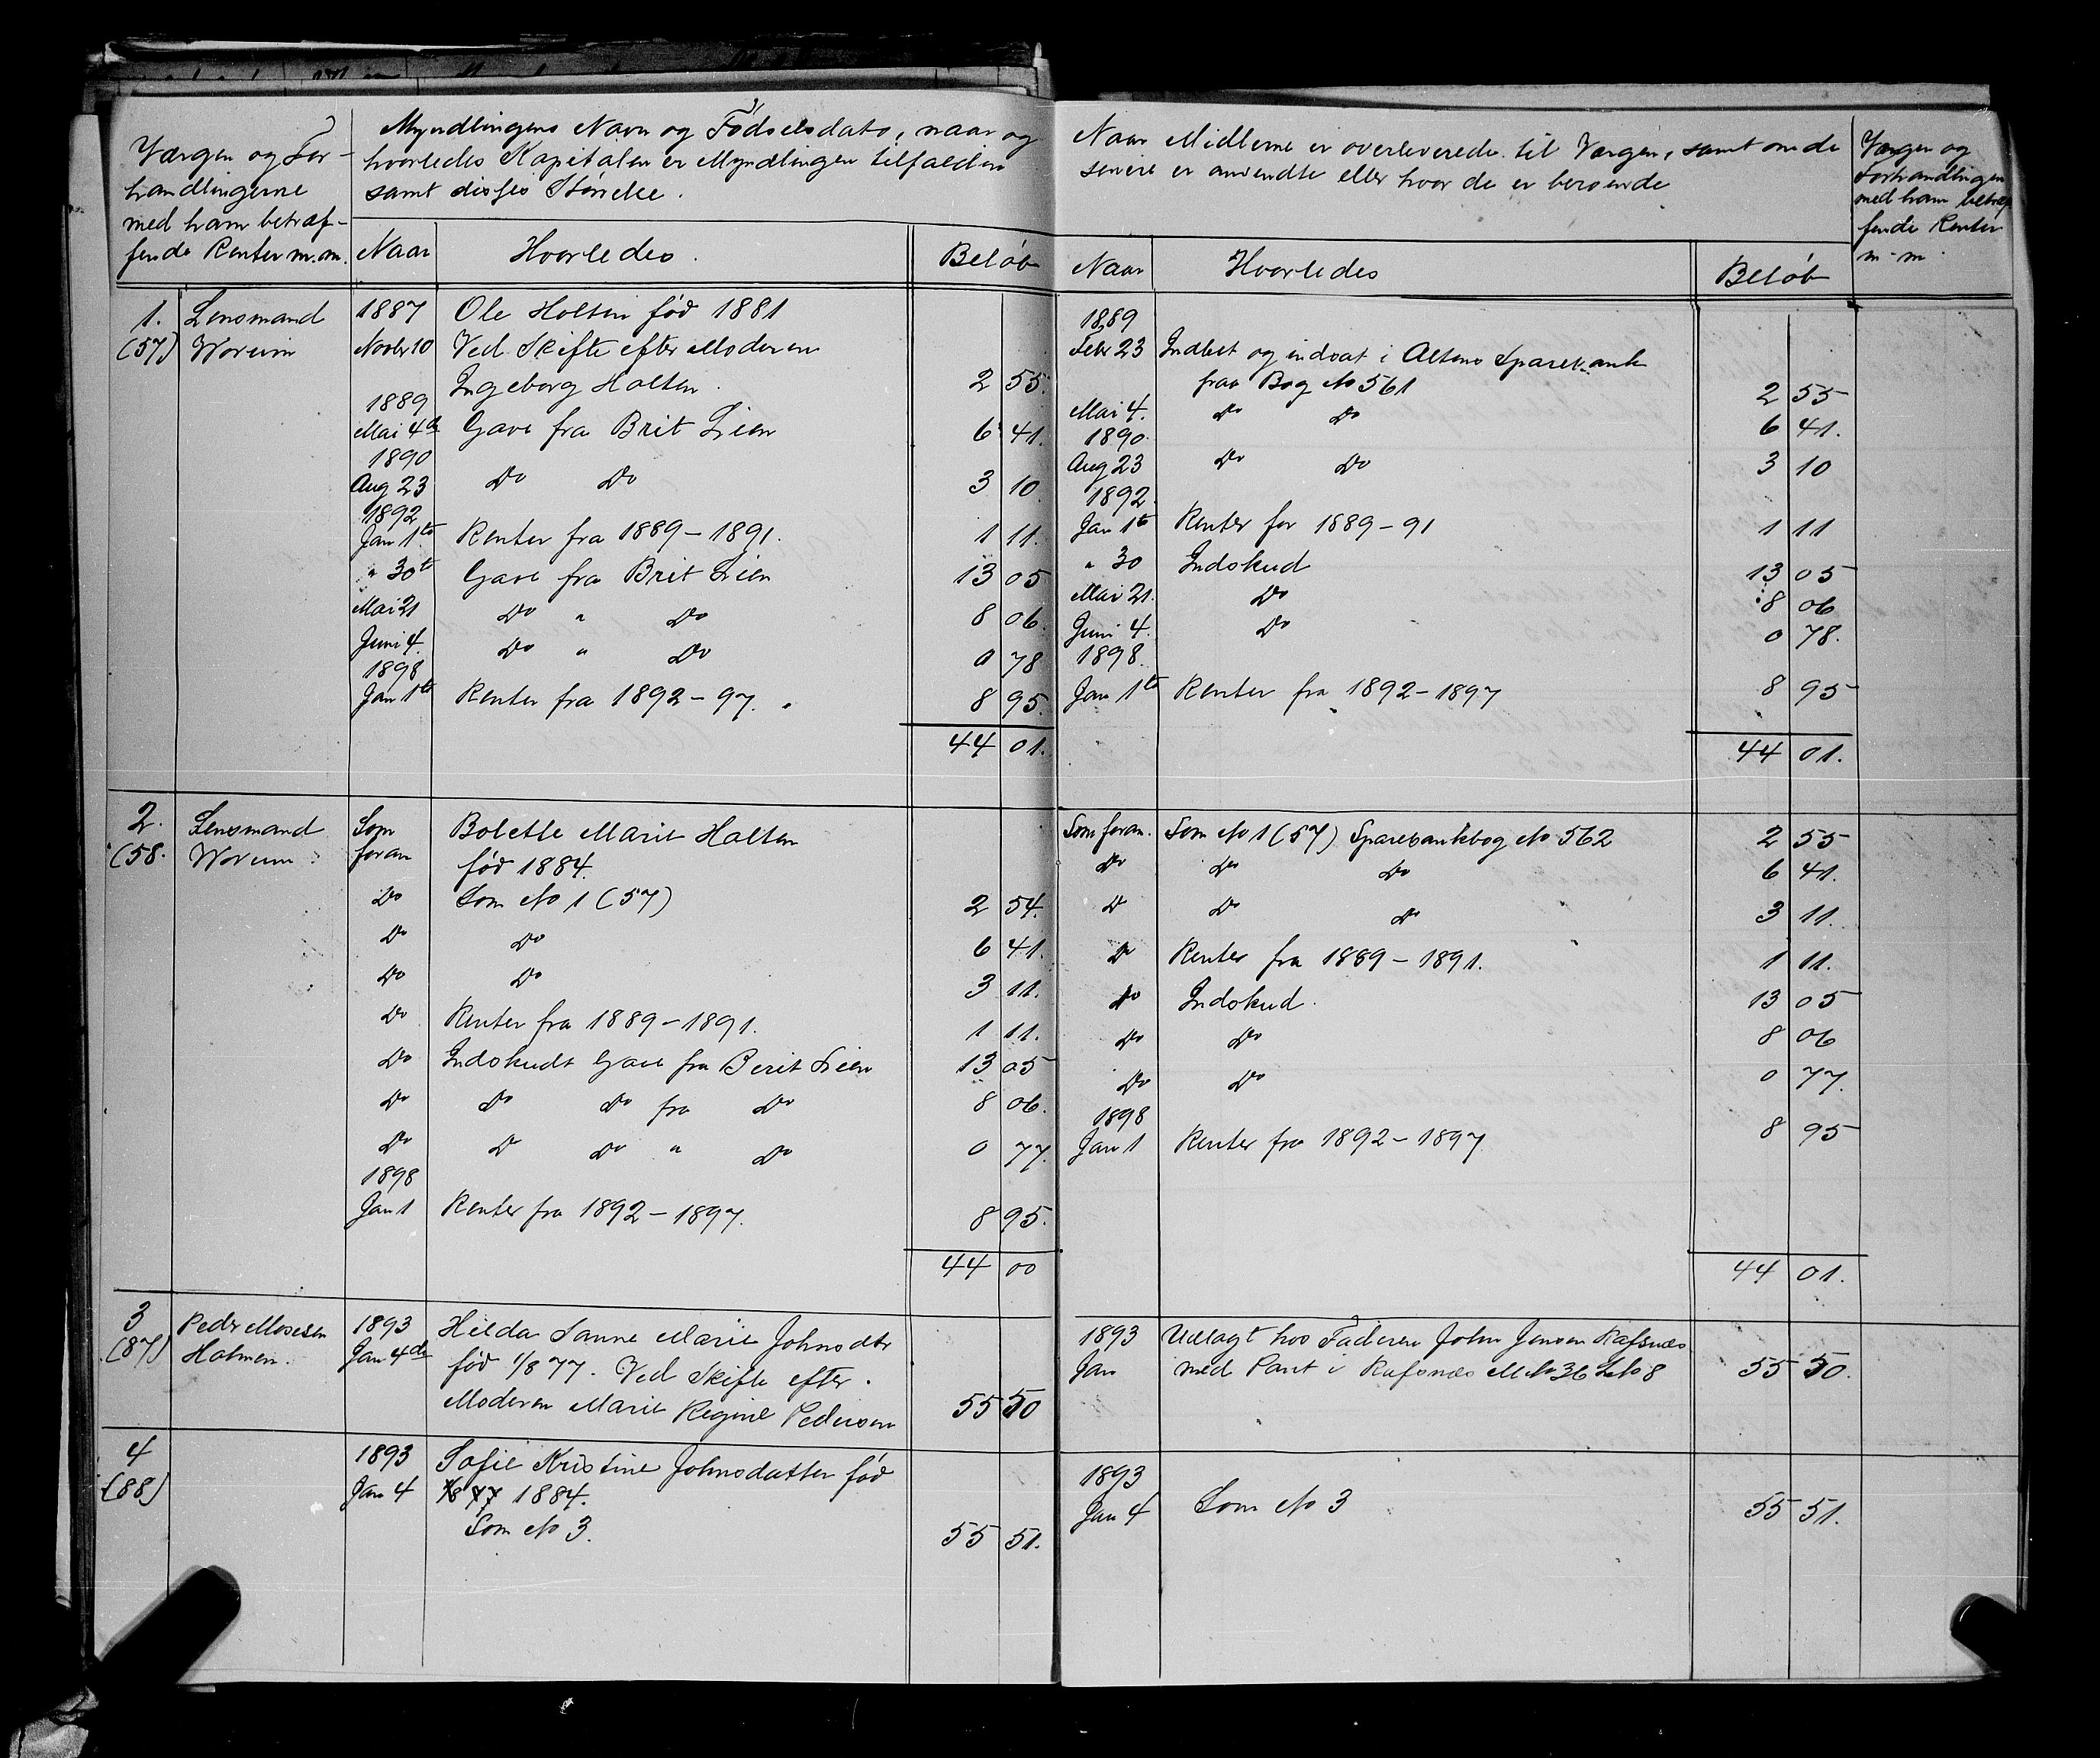 Værgen og For-
handlingerne
med ham betræf-
fende Renter m.m.
Myndlingens Navn og Fødselsdato, naar og
hvorledes Kapitalen er Myndlingen tilfalden
samt disses Størrelse.
Naar Hvorledes. Beløb
1. Lensmand 1887 Ole Holten fød 1881
(57) Worum Novbr 10 Ved Skifte efter Moderen
Ingeborg Holten. 2 55.
1889
Mai 4de Gave fra Brit Lien 6 41.
1890
Aug 23 Do Do 3 10.
1892
Jan 1te Renter fra 1889-1891. 1 11.
" 30te Gave fra Brit Lien 13 05
Mai 21 Do " Do 8 06.
Juni 4. Do " Do 0 78
1898
Jan 1te Renter fra 1892-97. 8 95.
44 01.
2. Lensmand Som Bolette Marie Holten
(58. Worum foran fød 1884.
Do Som No 1 (57) 2 54.
Do Do 6 41.
Do Do 3 11.
Do Renter fra 1889-1891. 1 11.
Do Indskudt Gave fra Berit Lien 13 05
Do Do Do fra Do 8 06.
Do Do Do " Do 0 77.
1898
Jan 1 Renter fra 1892-1897. 8 95.
44 00
3 Peder Mosesen 1893 Hilda Sanne Marie Johnsdtr
(87) Holmen. Jan 4de fød 1/8 77. Ved Skifte efter
Moderen Marie Regine Pedersen 55 50
4 1893 Sofie Kristine Johnsdatter fød
(88) Jan 4 1/8 77 1884.
Som No 3. 55 51.
Naar Midlerne er overleverede til Værgen, samt om de
senere er anvendte eller hvor de er beroende
Værgen og
Forhandlingen
med ham betræf
fende Renter
m-m.
Naar Hvorledes Beløb
1889
Febr 23 Indløst og indsat i Altens Sparebank
paa Bog No 561 2 55
Mai 4. Do Do 6 41.
1890.
Aug 23 Do Do 3 10
1892.
Jan 1te Renter for 1889-91 1 11
" 30 Indskud 13 05
Mai 21. Do 8 06
Juni 4. Do 0 78.
1898.
Jan 1te Renter fra 1892-1897 8 95
44 01.
Som foran. Som No 1 (57) Sparebankbog No 562 2 55
Do Do Do 6 41.
Do Do Do 3 11.
Do Renter fra 1889-1891. 1 11.
Do Indskud. 13 05
Do Do 8 06
Do Do 0 77.
1898
Jan 1 Renter fra 1892-1897 8 95
44 01.
1893 Udlagt hos Faderen John Jensen Rafsnæs
Jan med Pant i Rafsnæs M No 36 L No 8 55 50.
1893
Jan 4 Som No 3 55 51.